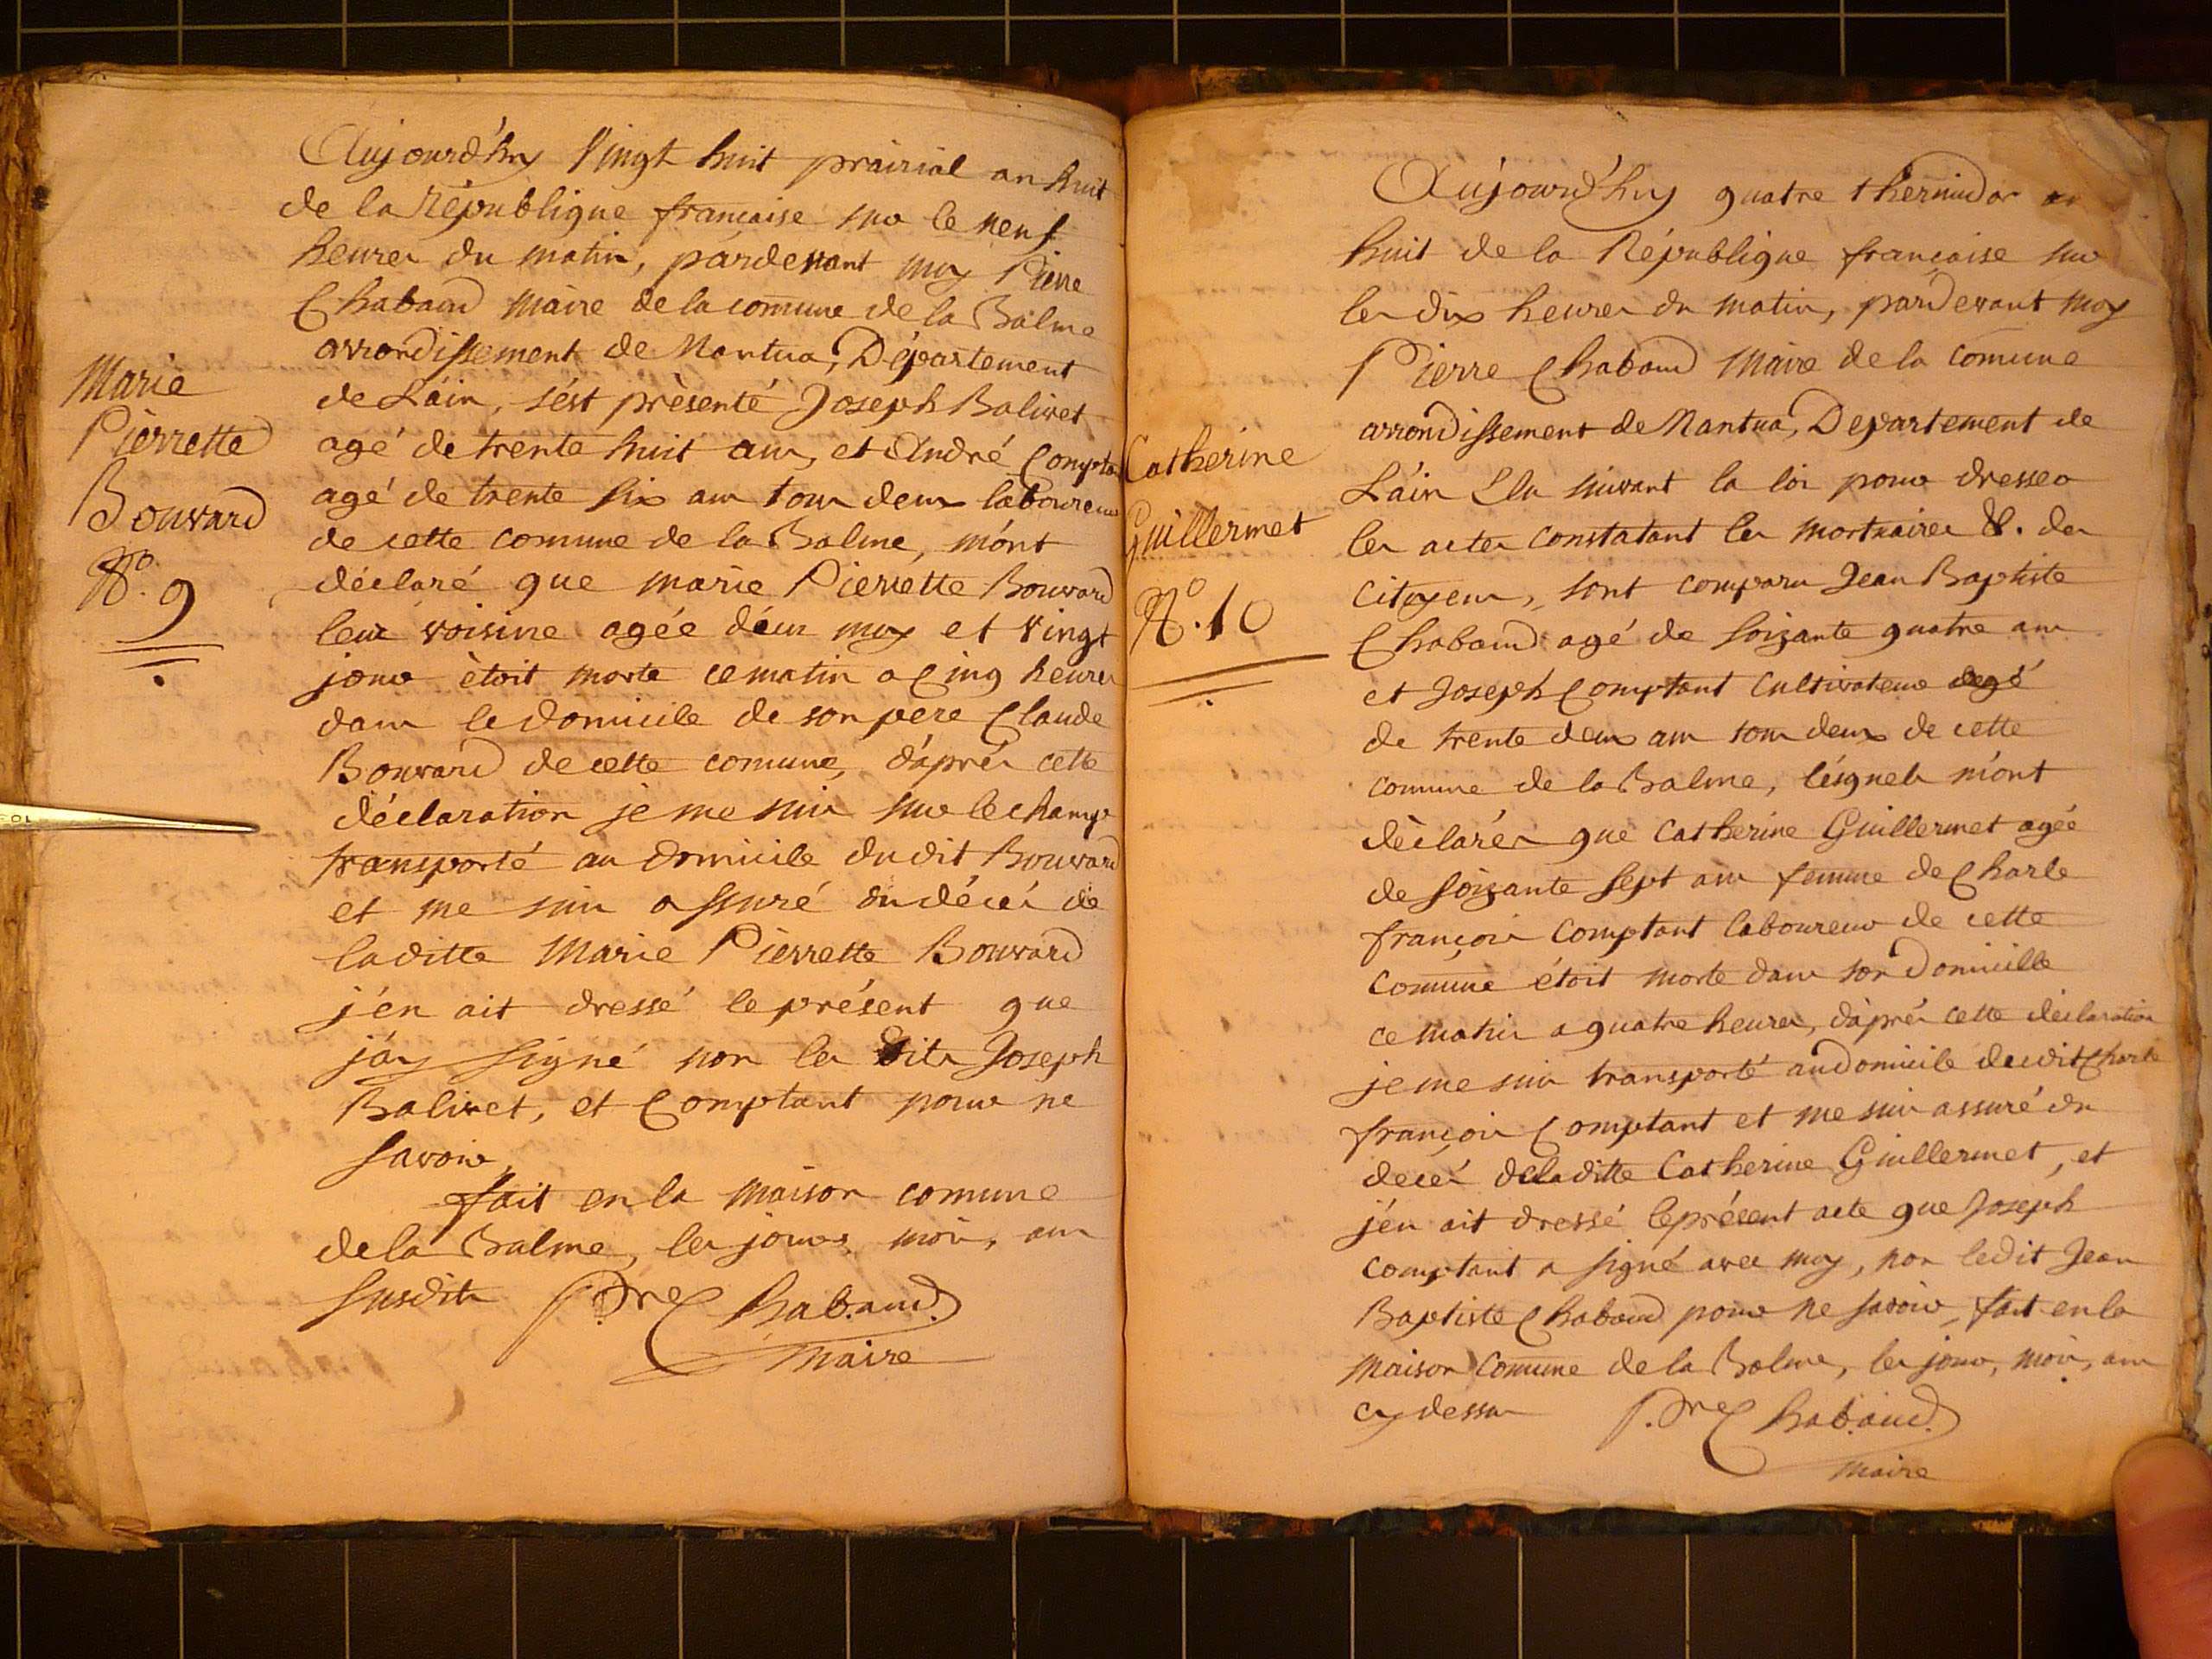 Aujourd'huy Vingt huit prairial an huit
de la République française sur le neuf
heures du matin, pardevant moy Pierre
Chabaud Maire de la comune de la Balme
arrondissement de Nantua, Département
de L'áin, s'ést prèsenté Joseph Balivet
agé de trente huit ans, et André Comptan
agé de trente six ans tous deux laboureurs
de cette comune de la Balme, m'ónt
déclaré que marie Pierrétte Bouvard
leur voisine agée déux moy et vingt
jours ètoit morte ce matin a Cinq heures
dans le domicile de son pere Claude
Bouvard de cette comune, d'áprés cette
déclaration je me suis sur le champs
transporté au domicile du dit Bouvard
et me suis assuré du décés de
laditte Marie Pierrette Bouvard
j'én ait dressé le présent que
j'áy signé non les dits Joseph
Balivet, et Comptant pour ne
savoir,
fait en la maison comune
de la Balme, les jours, mois, ans
susdits Pre Chabaud
Maire
Marie
Pierrette
Bouvard
No. 9
Aujourd'huy quatre thermidor an
huit de la République française sur
les dix heures du matin, pardevant moy
Pierre Chabaud Maire de la comune
arrondissement de Nantua, Departement de
L'áin Elu suivant la loi pour dresser
les actes constatant les mortuaires &. des
Citoyens, sont comparu Jean Baptiste
Chabaud agé de soizante quatre ans
et Joseph Comptant Cultivateur agé
de trente deux ans tous deux de cette
comune de la Balme, lésquels m'ont
dèclarés que Catherine Guillermet agée
de soizante sept ans femme de Charle
françois Comptant laboureur de cette
Comune étoit morte dans son Domicille
ce matin a quatre heures, d'áprés cette déclaration
je me suis transporté au domicile du dit Charle
françois Comptant et me suis assuré du
decés de laditte Catherine Guillermet, et
j'én ait dressé le présent acte que Joseph
Comptant a signé avec moy, non ledit Jean
Baptiste Chabaud pour ne savoir, fait en la
Maison Comune de la Balme, les jour, mois, ans
cy dessus Pre Chabaud
Maire
Catherine
Guillermet
No. 10